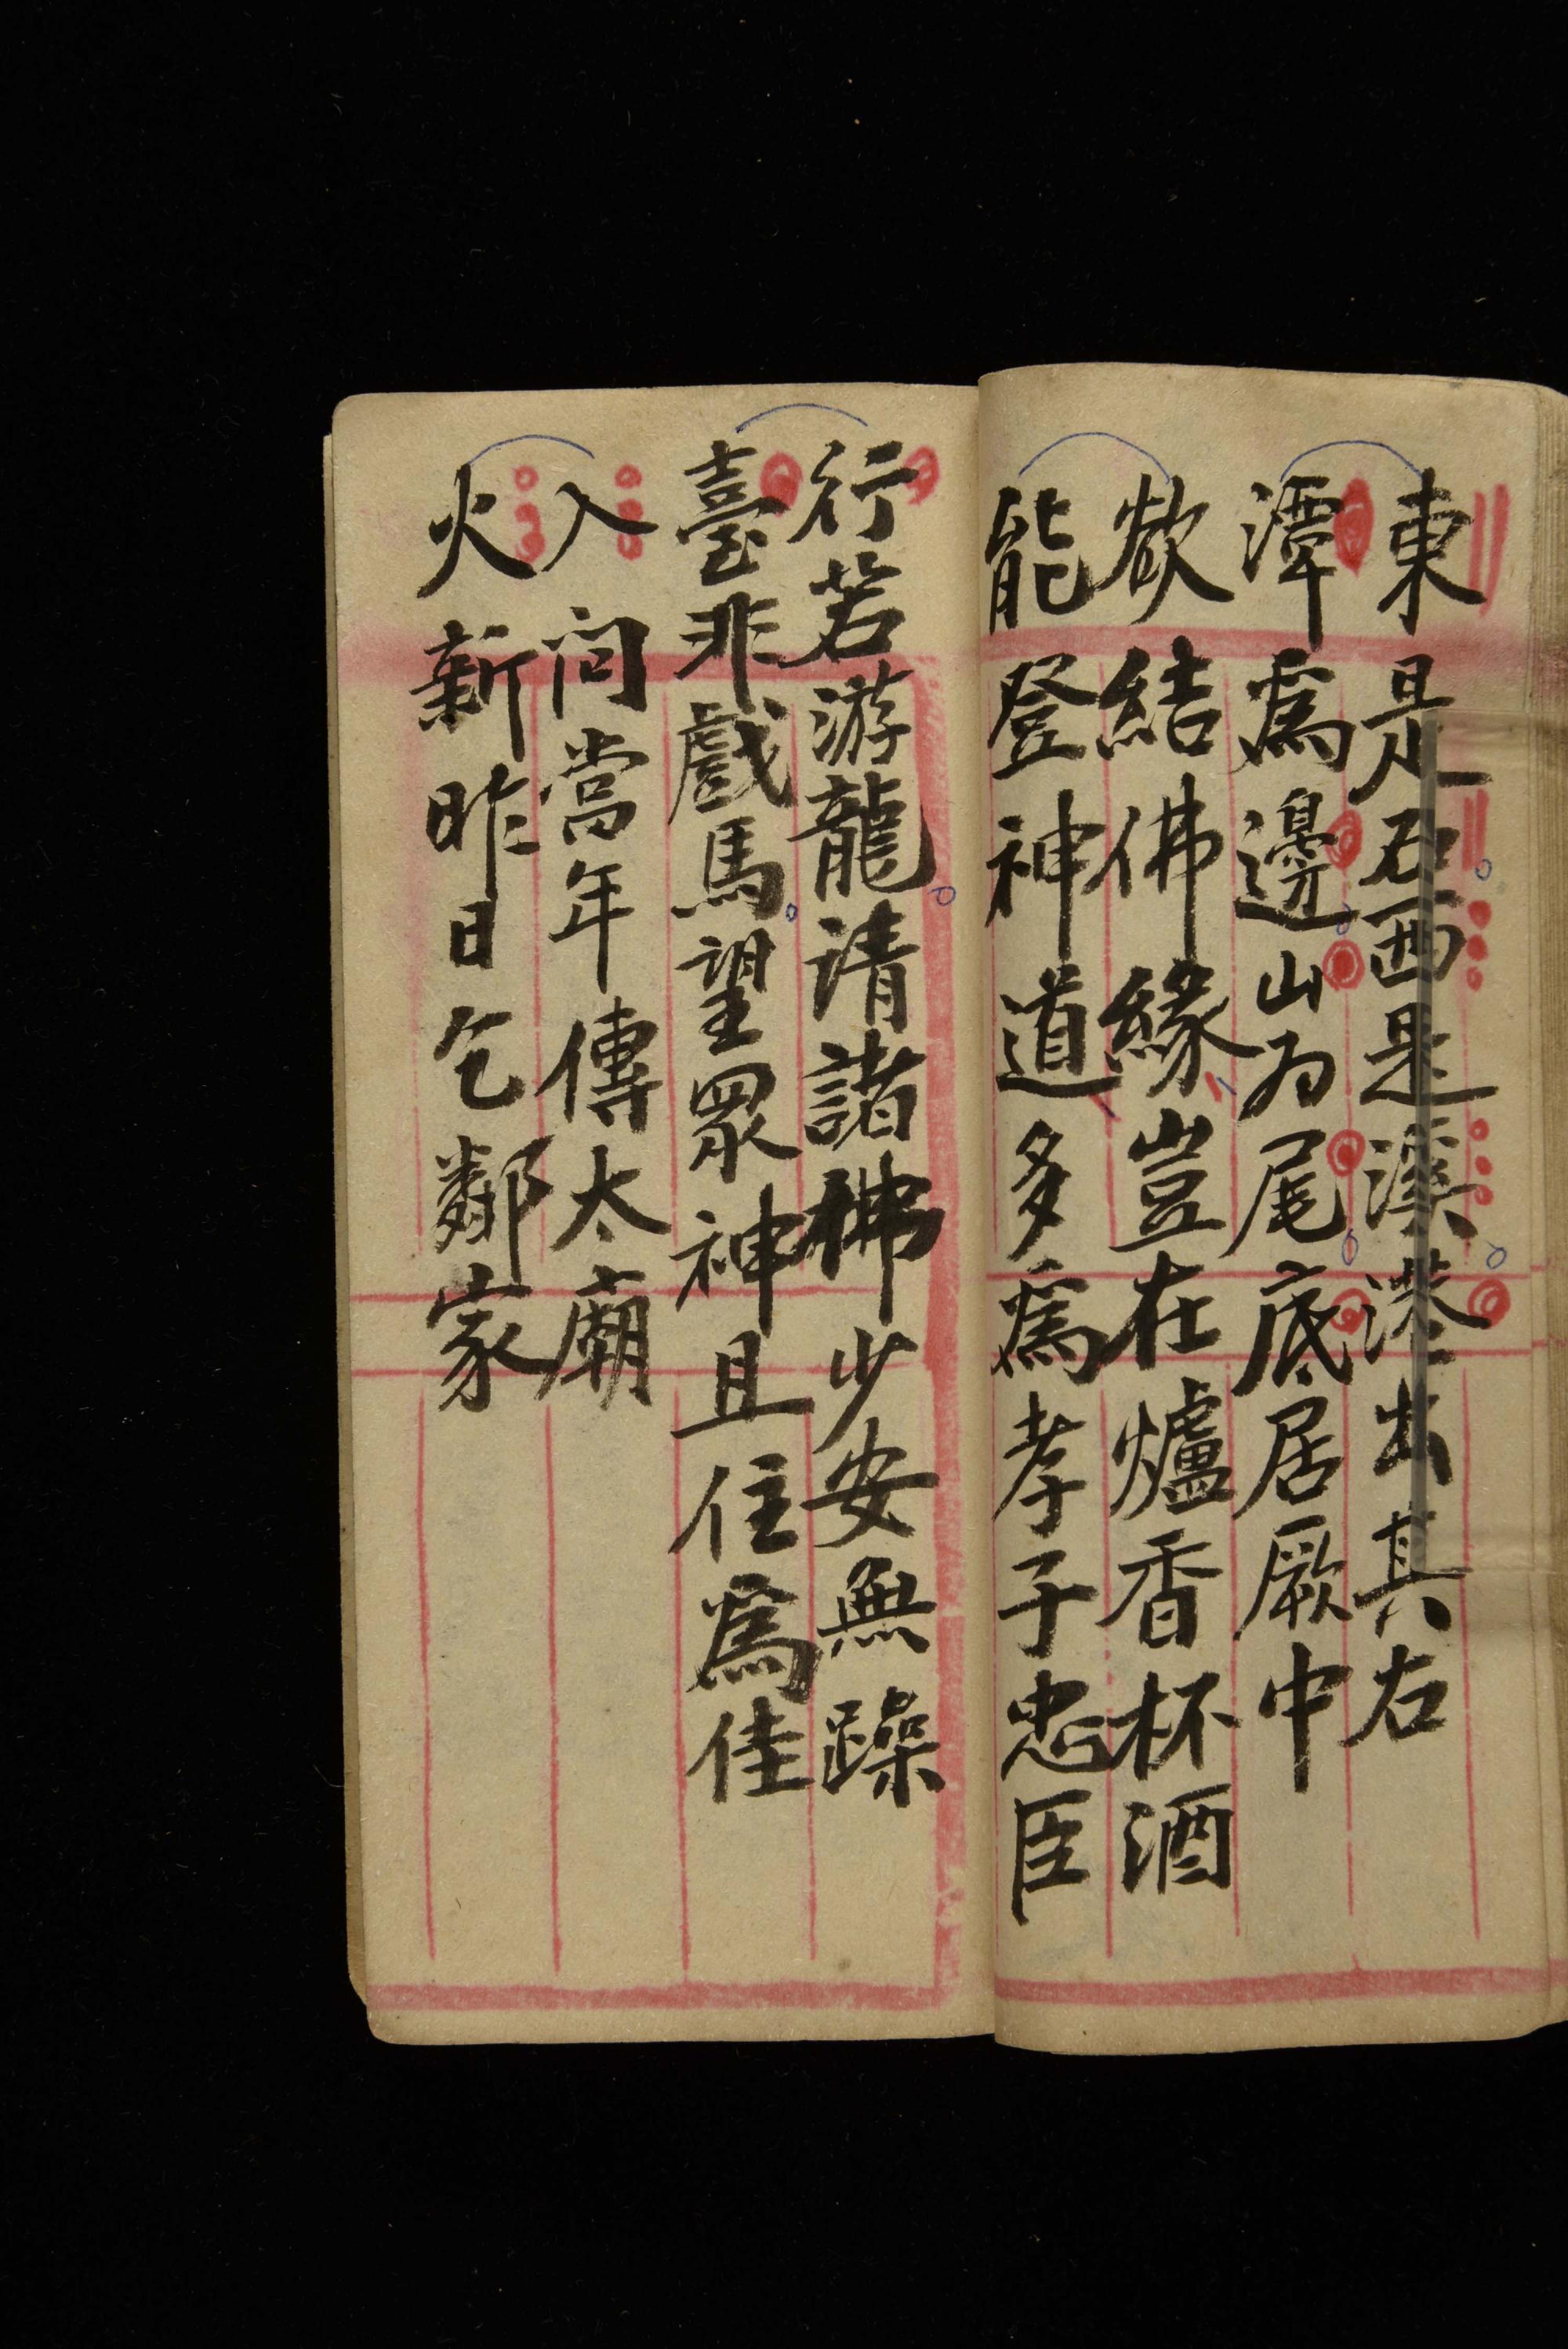 東是石西是溪港出其右
潭為邊山為尾底居厥中
欲結佛緣豈在爐香杯酒
能登神道多為孝子忠臣
行若游龍請諸佛少安無躁
臺非戲馬望眾神且住為佳
入问當年傳太廟
火新昨日乞鄰家